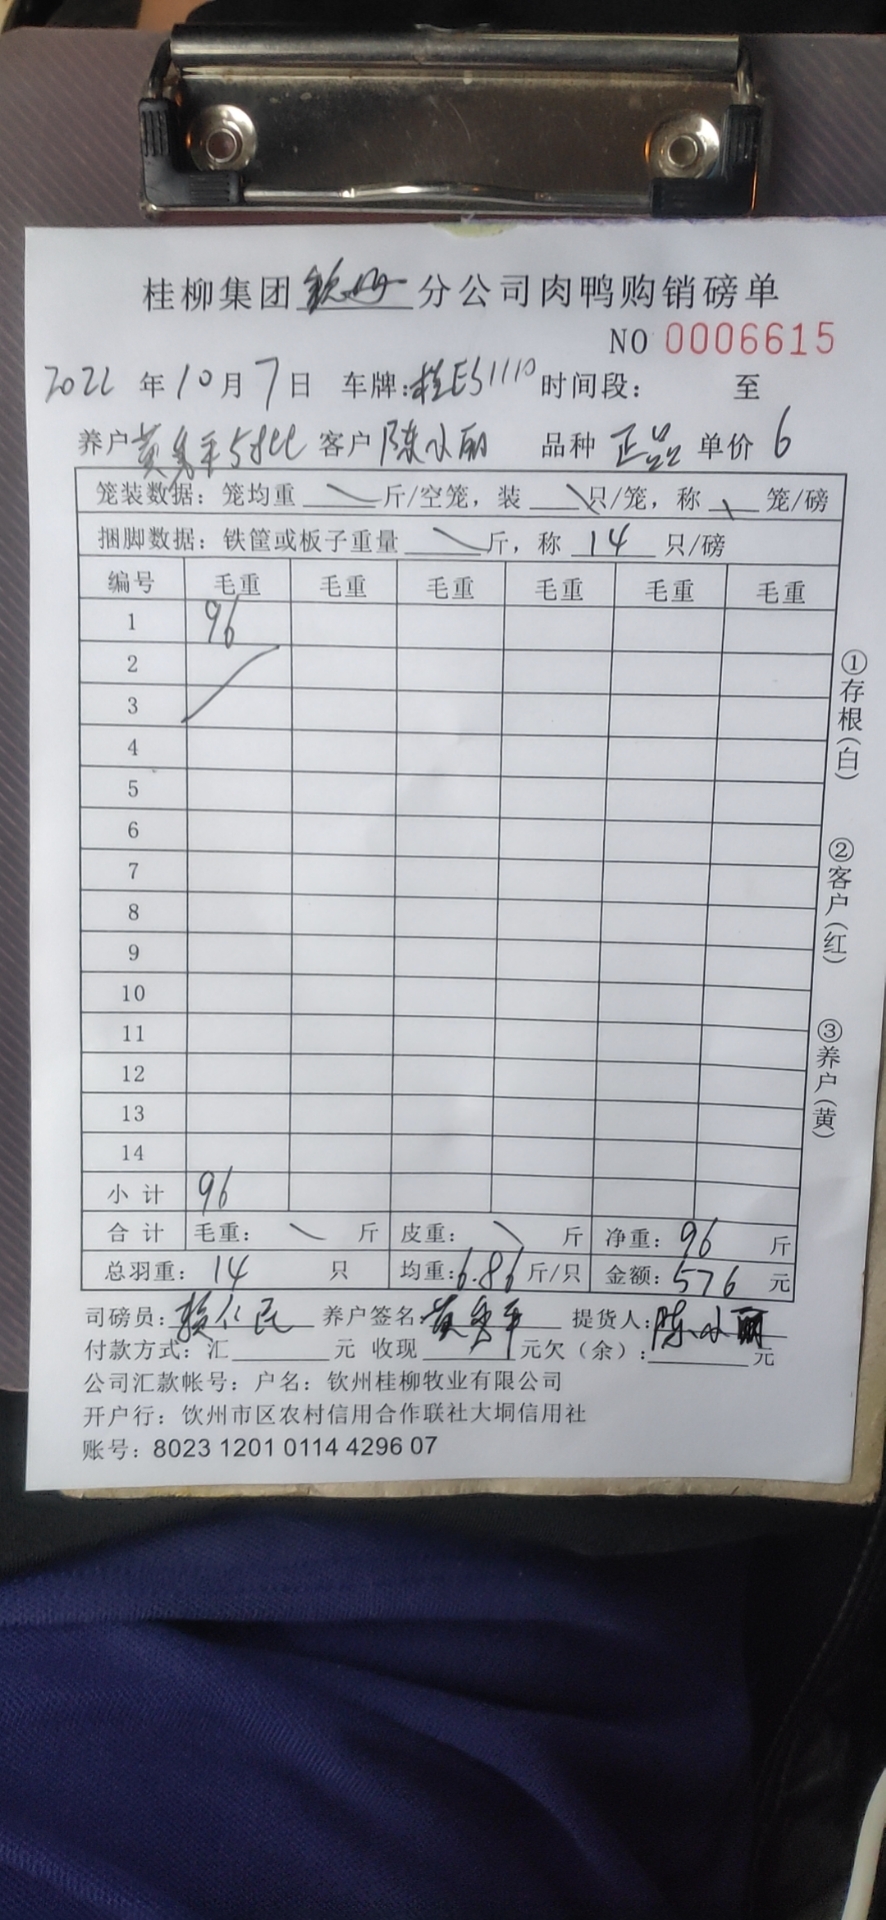 桂柳集团钦州分公司肉鸭购销磅单
NO 0006615
2022年10月7日 车牌:桂ES1110 时间段: 至
养户 黄秀平 客户 陈小丽 品种 正品 单价 6
笼装数据:笼均重 \ 斤/空笼,装 \ 只/笼,称 \ 笼/磅
捆脚数据:铁筐或板子重量 \ 斤,称 14 只/磅
编号 毛重 毛重 毛重 毛重 毛重 毛重
1 96
2
3
4
5
6
7
8
9
10
11
12
13
14
小计 96
合计 毛重: \ 斤 皮重: \ 斤 净重: 96 斤
总羽重: 14 只 均重: 6.86 斤/只 金额: 576 元
司磅员: 养户签名: 黄秀平 提货人: 陈小丽
付款方式:汇 元 收现 元欠(余): 元
公司汇款帐号:户名:钦州桂柳牧业有限公司
开户行:钦州市区农村信用合作联社大垌信用社
账号:8023 1201 0114 4296 07
①存根(白)
②客户(红)
③养户(黄)